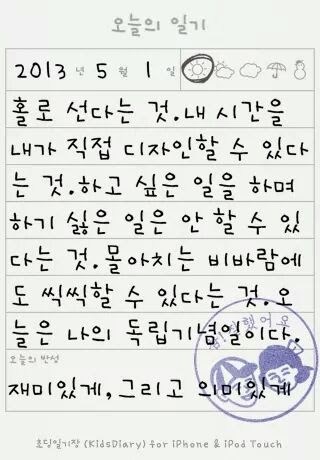 오늘의 일기
2013 년 5 월 1 일
홀로 선다는 것.내 시간을
내가 직접 디자인할 수 있다
는 것.하고 싶은 일을 하며
하기 싫은 일은 안 할 수 있
다는 것.몰아치는 비바람에
도 씩씩할 수 있다는 것.오
늘은 나의 독립기념일이다.
참 잘했어요
오늘의 반성
재미있게,그리고 의미있게
초딩일기장 (KidsDiary) for iPhone & iPod Touch